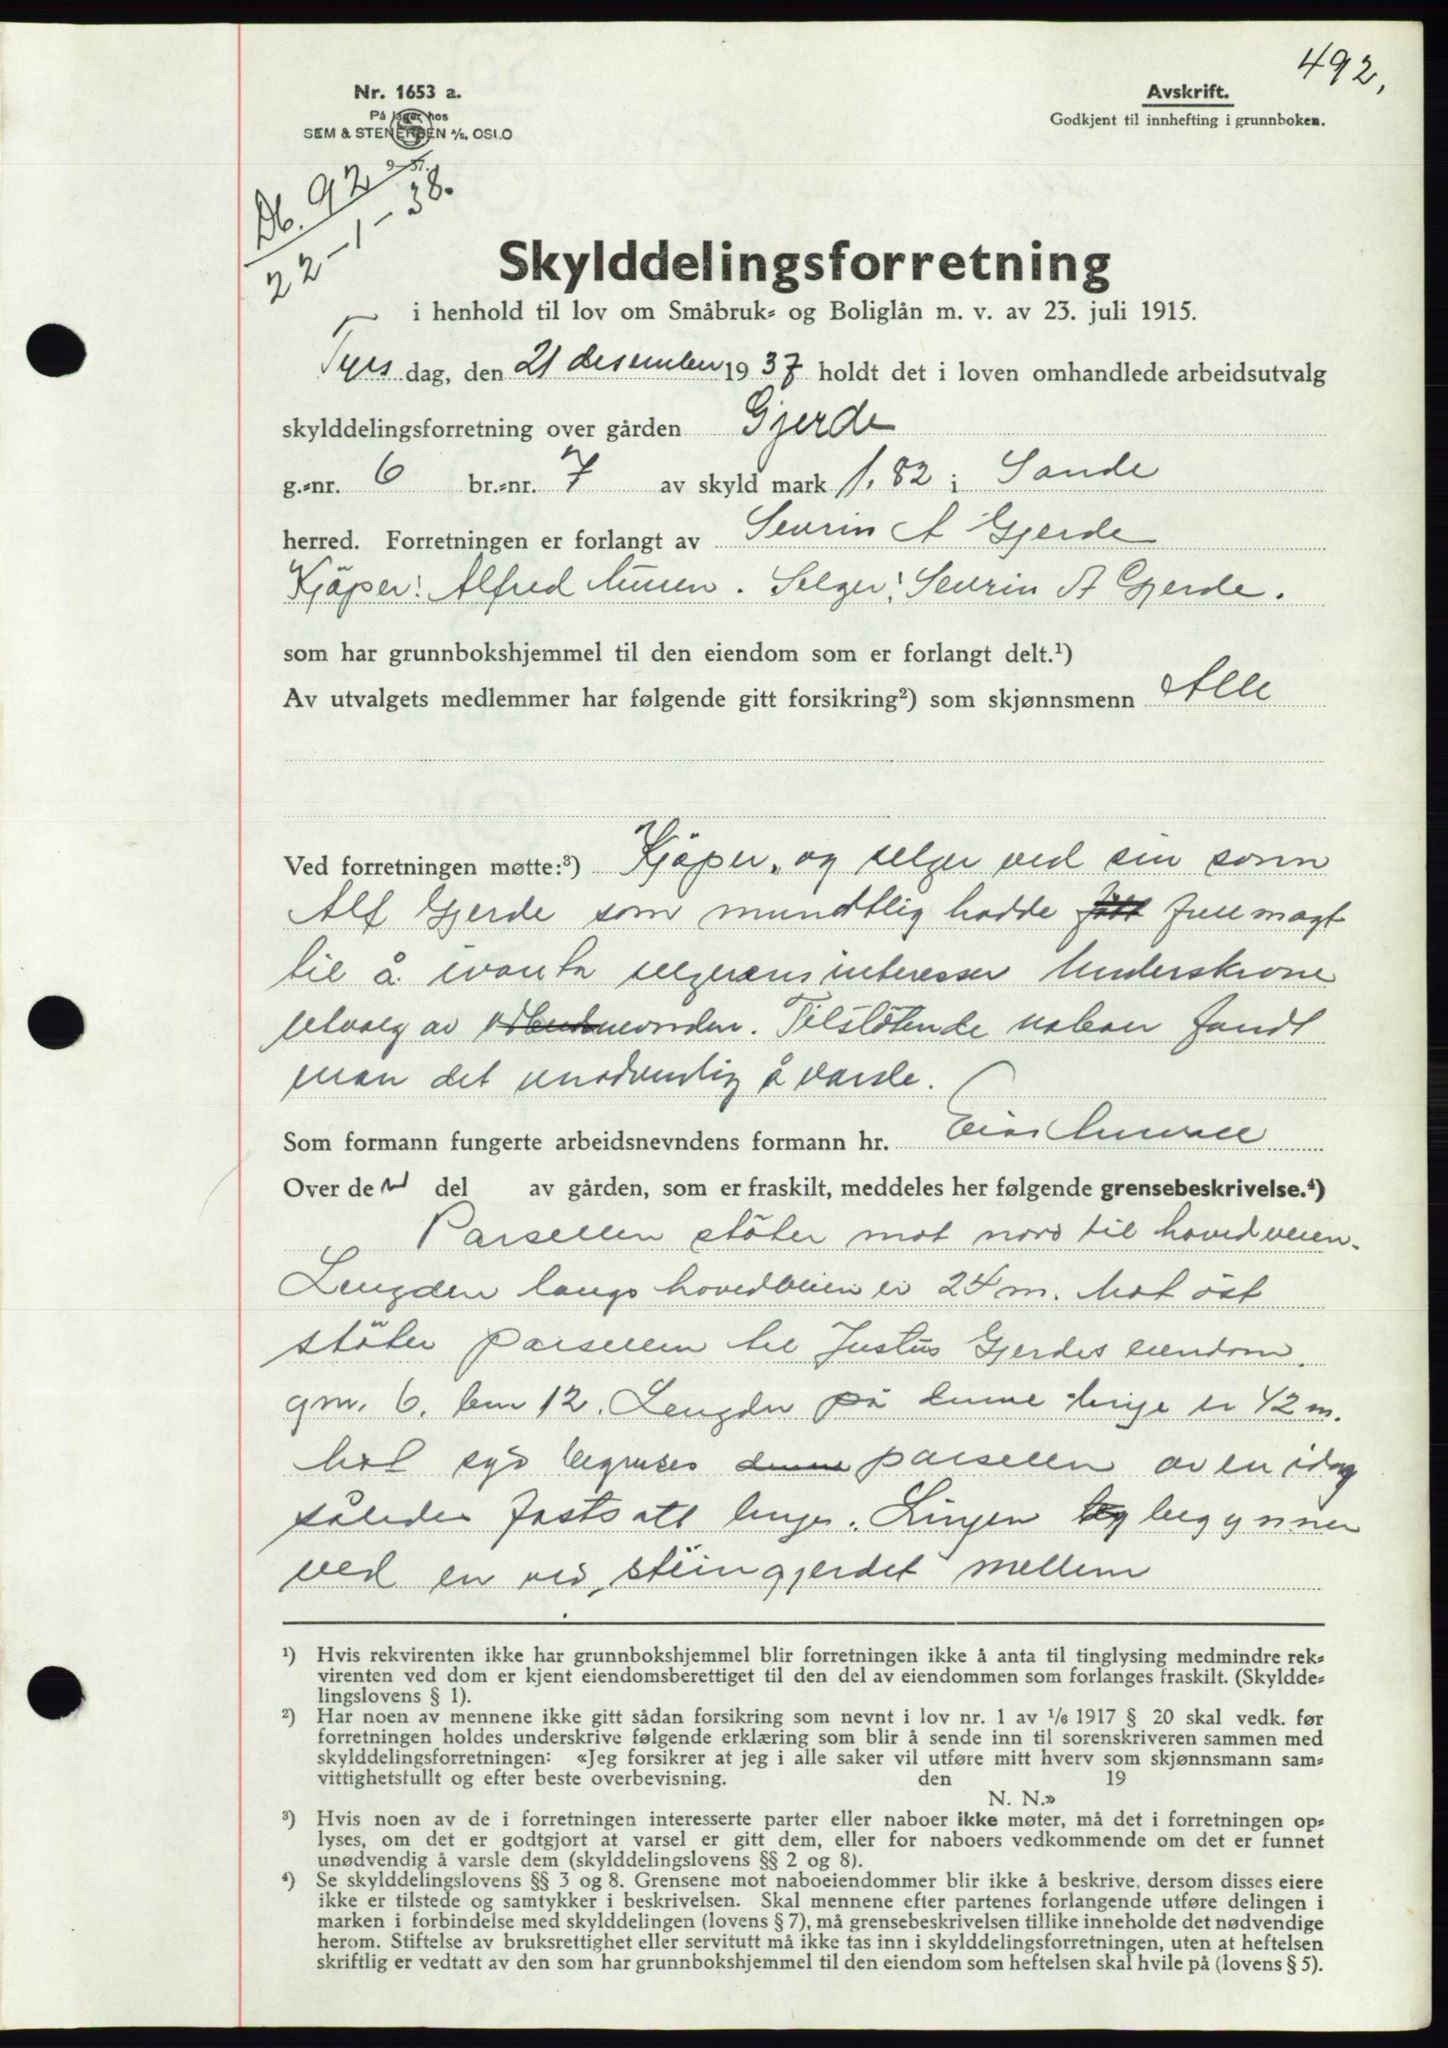 492,
Nr. 1653 a.
På lager hos
SEM & STENERSEN A/S, OSLO
9–37.
Avskrift.
Godkjent til innhefting i grunnboken.
Db. 92
22-1-38.
Skylddelingsforretning
i henhold til lov om Småbruk- og Boliglån m. v. av 23. juli 1915.
Tyrs dag, den 21 desember 1937 holdt det i loven omhandlede arbeidsutvalg
skylddelingsforretning over gården Gjerde
g.-nr. 6 br.-nr. 7 av skyld mark 1.82 i Sande
herred. Forretningen er forlangt av Sevrin A Gjerde
Kjöper: Alfred . Selger: Sevrin A Gjerde.
som har grunnbokshjemmel til den eiendom som er forlangt delt.¹)
Av utvalgets medlemmer har følgende gitt forsikring²) som skjønnsmenn Alle
Ved forretningen møtte:³) Kjöper og selger ved sin sønn
Alf Gjerde som mundtlig hadde fått fullmagt
til å ivareta selgerens interesser Underskrone
utvalg av nevnden. Tilstötende naboer fandt
man det unödvendig å varsle.
Som formann fungerte arbeidsnevndens formann hr. Einar
Over den del av gården, som er fraskilt, meddeles her følgende grensebeskrivelse.⁴)
Parsellen stöter mot nord til hovedveien.
Lengden langs hovedveien er 24 m. Mot öst
stöter parsellen til Justus Gjerdes eiendom
gnr. 6. bnr 12. Lengden på denne linje er 42 m.
Mot syd begrenses denne parsellen av en idag
således fastsatt linje. Linjen begynner
ved en ved steingjerdet mellem
¹) Hvis rekvirenten ikke har grunnbokshjemmel blir forretningen ikke å anta til tinglysing medmindre rek-
virenten ved dom er kjent eiendomsberettiget til den del av eiendommen som forlanges fraskilt. (Skyldde-
lingslovens § 1).
²) Har noen av mennene ikke gitt sådan forsikring som nevnt i lov nr. 1 av 1/6 1917 § 20 skal vedk. før
forretningen holdes underskrive følgende erklæring som blir å sende inn til sorenskriveren sammen med
skylddelingsforretningen: «Jeg forsikrer at jeg i alle saker vil utføre mitt hverv som skjønnsmann sam-
vittighetsfullt og efter beste overbevisning. den 19
N. N.»
³) Hvis noen av de i forretningen interesserte parter eller naboer ikke møter, må det i forretningen op-
lyses, om det er godtgjort at varsel er gitt dem, eller for naboers vedkommende om det er funnet
unødvendig å varsle dem (skylddelingslovens §§ 2 og 8).
⁴) Se skylddelingslovens §§ 3 og 8. Grensene mot naboeiendommer blir ikke å beskrive, dersom disses eiere
ikke er tilstede og samtykker i beskrivelsen. Skal mennene efter partenes forlangende utføre delingen i
marken i forbindelse med skylddelingen (lovens § 7), må grensebeskrivelsen tillike inneholde det nødvendige
herom. Stiftelse av bruksrettighet eller servitutt må ikke tas inn i skylddelingsforretningen, uten at heftelsen
skriftlig er vedtatt av den som har grunnbokshjemmel til den eiendom som heftelsen skal hvile på (lovens § 5).